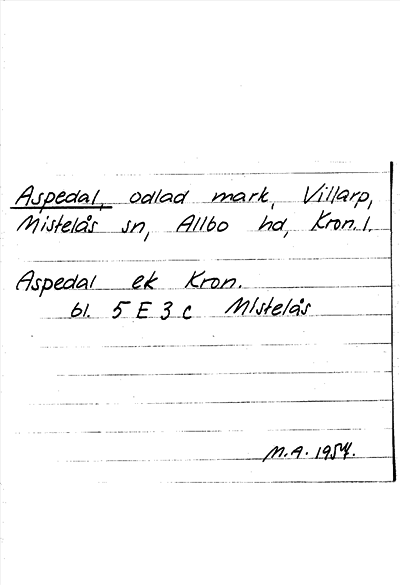 Aspedal, odlad mark, Villarp,
Mistelås sn, Allbo hd, Kron. l.
Aspedal ek Kron.
bl. 5 E 3 c Mistelås
M.A. 1954.